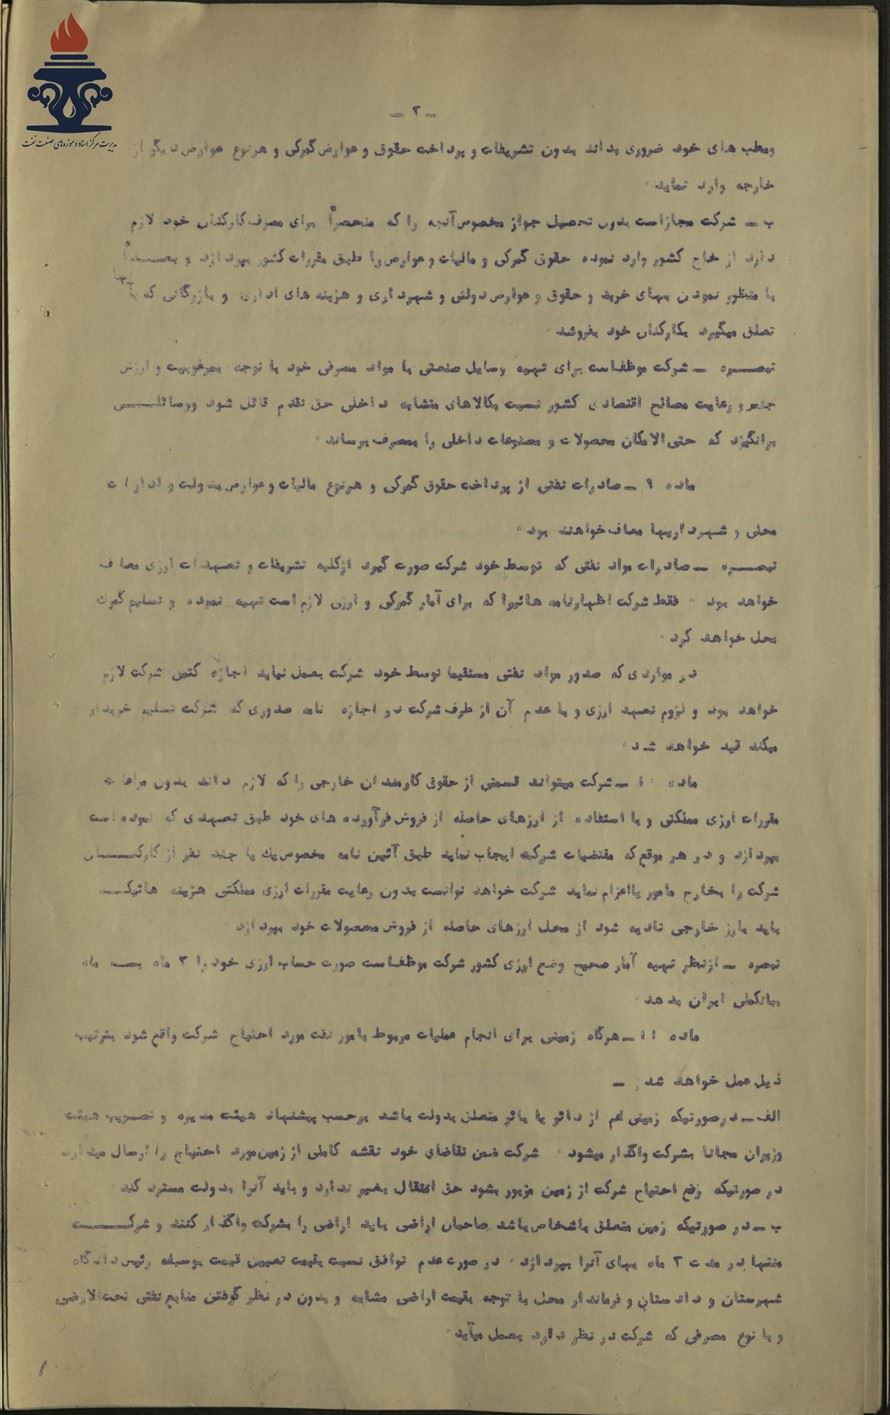 مدیریت مرکز اسناد و موزه‌های صنعت نفت
ـ ۳ ـ
ومطب های خود ضروری بداند بدون تشریفات و پرداخت حقوق و عوارض گمرکی و هرنوع عوارض دیگر از
خارجه وارد نماید ۰
ب ـ شرکت مجازاست بدون تحصیل جواز مخصوص آنچه را که منحصراً برای مصرف کارکنان خود لازم
دارد از خارج کشور وارد نموده حقوق گمرکی و مالیات و عوارض را طبق مقررات کشور بپردازد و بعـــداً
با منظور نمودن بهای خرید و حقوق و عوارض دولتی و شهرداری و هزینه های اداری و بازرگانی که با
تعلق میگیرد بکارکنان خود بفروشد ۰
تبصــره ـ شرکت موظف است برای تهیه وسایل صنعتی یا مواد مصرفی خود با توجه بمرغوبیت و ارزش
جنس و رعایت مصالح اقتصادی کشور نسبت بکالاهای مشابه داخلی حق تقدم قائل شود ووسائلـــی
برانگیزد که حتی الامکان محصولات و مصنوعات داخلی را بمصرف برساند ۰
ماده ۹ ـ صادرات نفتی از پرداخت حقوق گمرکی و هرنوع مالیات و عوارض بدولت و ادارات
محلی و شهرداریها معاف خواهند بود ۰
تبصــره ـ صادرات مواد نفتی که توسط خود شرکت صورت گیرد ازکلیه تشریفات و تعهدات ارزی معاف
خواهد بود ۰ فقط شرکت اظهارنامه هائیرا که برای آمار گمرکی و ارزی لازم است تهیه نموده و تسلیم گمرک
محل خواهد کرد ۰
در مواردی که صدور مواد نفتی مستقیما توسط خود شرکت بعمل نیاید اجازه کتبی شرکت لازم
خواهد بود و لزوم تعهد ارزی و یا عدم آن از طرف شرکت در اجازه نامه صدوری که شرکت تسلیم خریدار
میکند قید خواهد شد ۰
ماده ۱۰ ـ شرکت میتواند قسمتی از حقوق کارمندان خارجی را که لازم داند بدون مراعات
مقررات ارزی مملکتی و با استفاده از ارزهای حاصله از فروش فرآورده های خود طبق تعهدی که نموده است
بپردازد و در هر موقع که مقتضیات شرکت ایجاب نماید طبق آئین نامه مخصوص یک یا چند نفر از کارکنـــان
شرکت را بخارج مامور یا اعزام نماید شرکت خواهد توانست بدون رعایت مقررات ارزی مملکتی هزینه هائیکـــه
باید بارز خارجی تادیه شود از محل ارزهای حاصله از فروش محصولات خود بپردازد ۰
تبصره ـ ازنظر تهیه آمار صحیح وضع ارزی کشور شرکت موظف است صورت حساب ارزی خود را ۳ ماه بـــه ماه
ببانکملی ایران بدهد ۰
ماده ۱۱ ـ هرگاه زمینی برای انجام عملیات مربوط بامور نفت مورد احتیاج شرکت واقع شود بترتیب
ذیل عمل خواهد شد : ـ
الف ـ درصورتیکه زمینی اعم از دائر یا بائر متعلق بدولت باشد برحسب پیشنهاد هیئت مدیره و تصویب هیئت
وزیران مجانا بشرکت واگذار میشود ۰ شرکت ضمن تقاضای خود نقشه کاملی از زمین مورد احتیاج را ارسال میدارد
در صورتیکه رفع احتیاج شرکت از زمین مزبور بشود حق انتقال بغیر ندارد و باید آنرا بدولت مسترد کند ۰
ب ـ در صورتیکه زمین متعلق باشخاص باشد صاحبان اراضی باید اراضی را بشرکت واگذار کنند و شرکـــت
منتها در مدت ۳ ماه بهای آنرا بپردازد ۰ در صورت عدم توافق نسبت بقیمت تعیین قیمت بوسیله رئیس دادگاه
شهرستان و دادستان و فرماندار محل با توجه بقیمت اراضی مشابه و بدون در نظر گرفتن منابع نفتی تحت الارضی
و یا نوع مصرفی که شرکت در نظر دارد بعمل میآید ۰